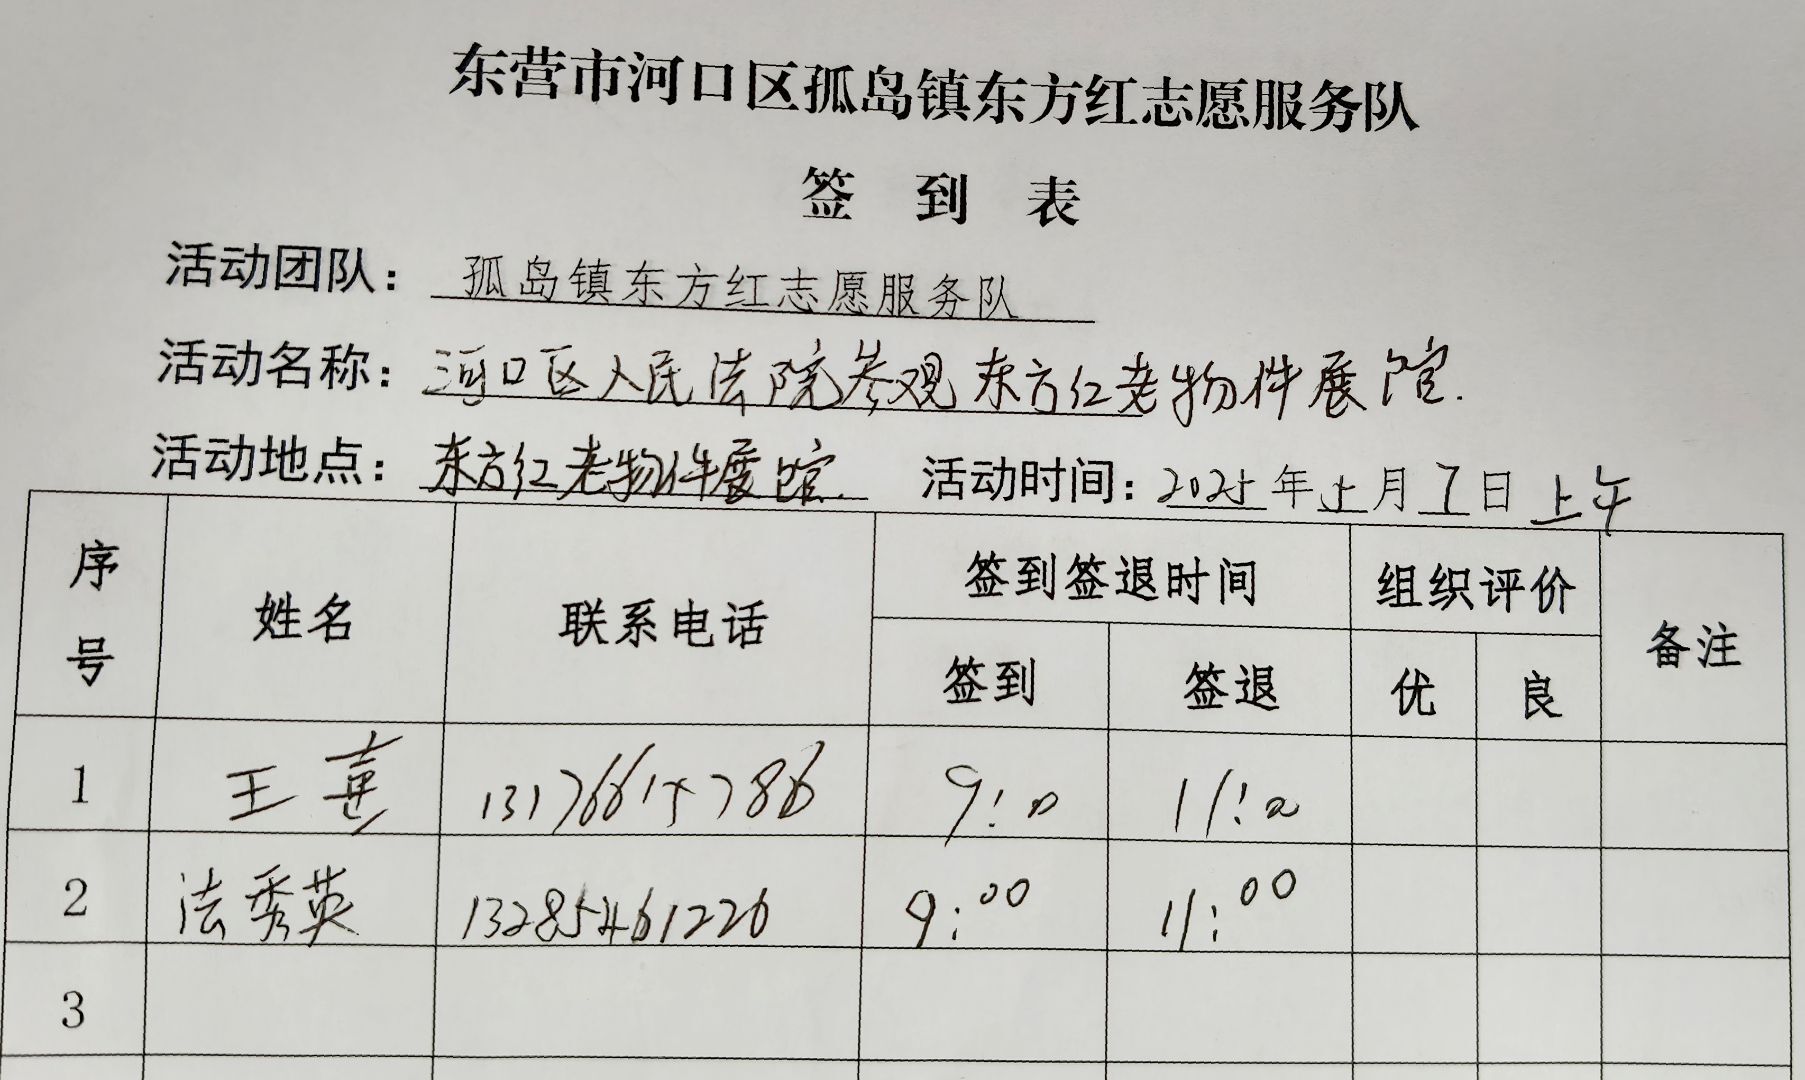 东营市河口区孤岛镇东方红志愿服务队
签到表
活动团队：孤岛镇东方红志愿服务队
活动名称：河口区人民法院参观东方红老物件展馆.
活动地点：东方红老物件展馆. 活动时间：2025年5月7日上午
序号 姓名 联系电话 签到签退时间 组织评价 备注
签到 签退 优 良
1 王 13176615786 9:00 11:00
2 法秀英 13285461226 9:00 11:00
3